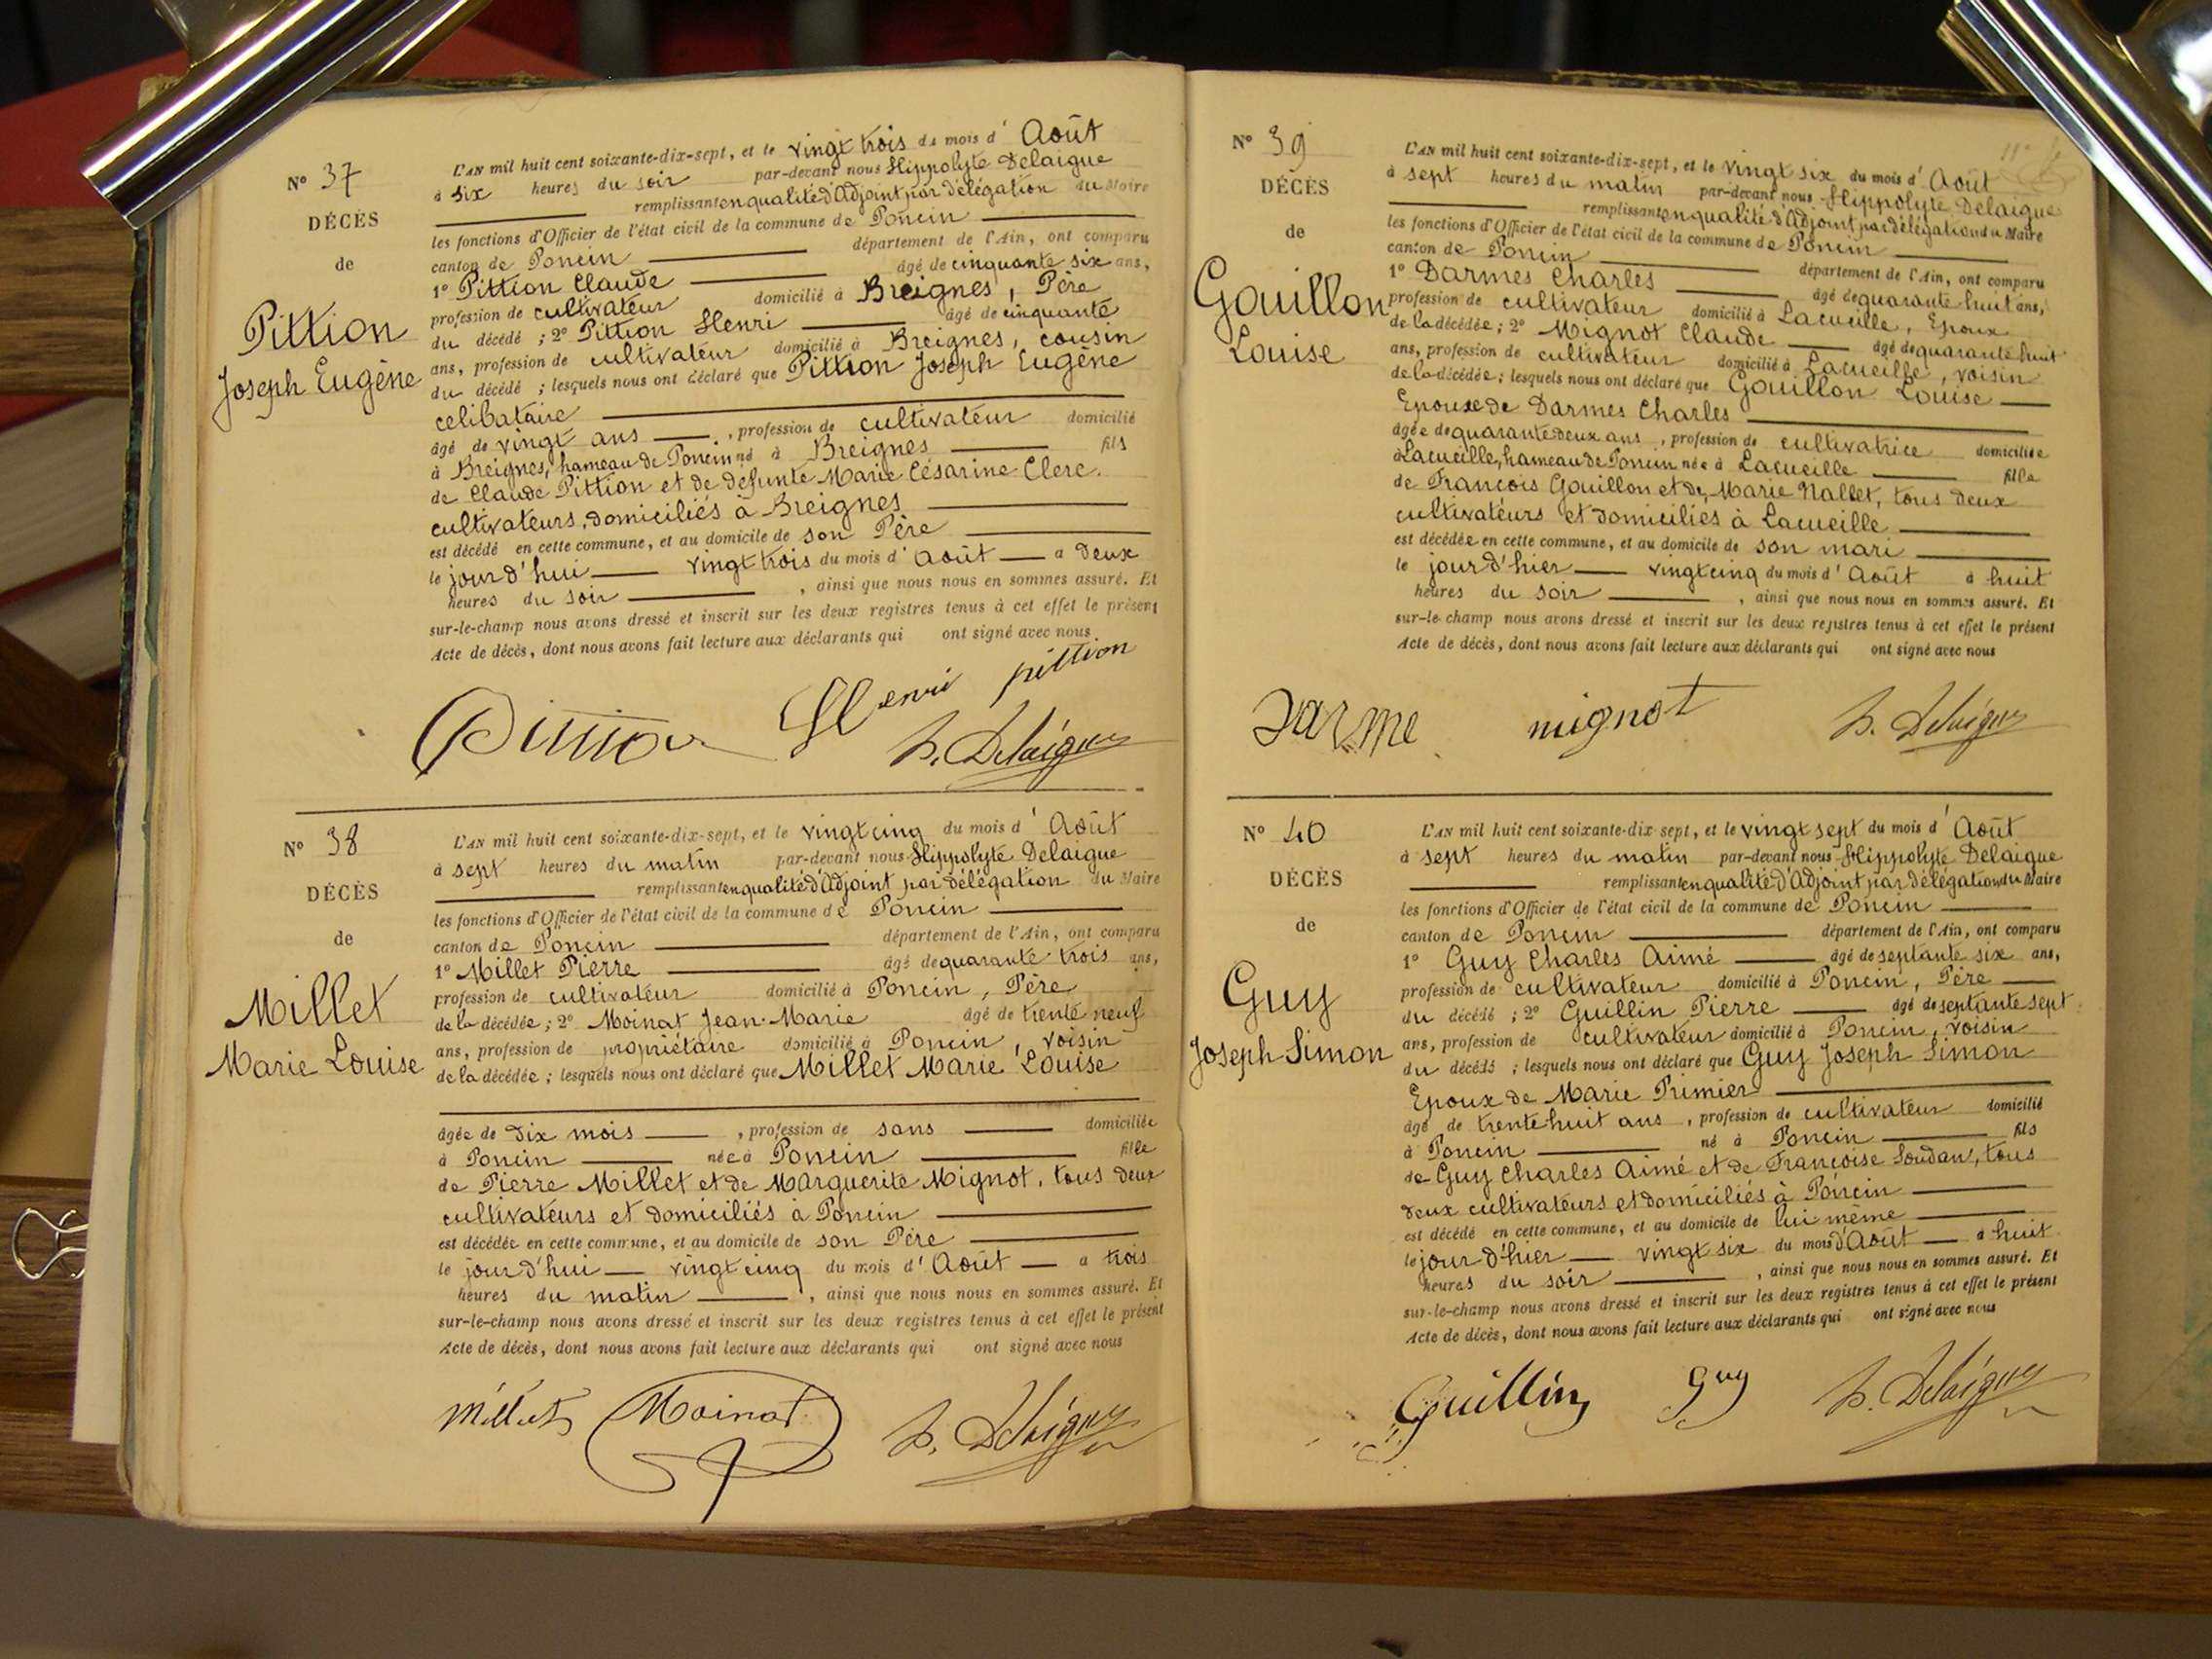 N° 37
DÉCÈS
de
Pittion
Joseph Eugène
L'AN mil huit cent soixante-dix-sept, et le vingt trois du mois d' Août
à six heures du soir par-devant nous Hippolyte Delaigue
remplissant en qualité d'Adjoint par délégation du Maire
les fonctions d'Officier de l'état civil de la commune de Poncin
canton de Poncin département de l'Ain, ont comparu
1° Pittion Claude âgé de cinquante six ans,
profession de cultivateur domicilié à Breignes, Père
du décédé ; 2° Pittion Henri âgé de cinquante
ans, profession de cultivateur domicilié à Breignes, cousin
du décédé ; lesquels nous ont déclaré que Pittion Joseph Eugène
celibataire
âgé de vingt ans , profession de cultivateur domicilié
à Breignes, hameau de Poncin né à Breignes fils
de Claude Pittion et de défunte Marie Césarine Clerc.
cultivateurs, domiciliés à Breignes
est décédé en cette commune, et au domicile de son Père
le jour d'hui vingt trois du mois d' Août à deux
heures du soir , ainsi que nous nous en sommes assuré. Et
sur-le-champ nous avons dressé et inscrit sur les deux registres tenus à cet effet le présent
Acte de décès, dont nous avons fait lecture aux déclarants qui ont signé avec nous
Pittion Henri pittion
h. Delaigue
N° 38
DÉCÈS
de
Millet
Marie Louise
L'AN mil huit cent soixante-dix-sept, et le vingt cinq du mois d' Août
à sept heures du matin par-devant nous Hippolyte Delaigue
remplissant en qualité d'Adjoint par délégation du Maire
les fonctions d'Officier de l'état civil de la commune de Poncin
canton de Poncin département de l'Ain, ont comparu
1° Millet Pierre âgé de quarante trois ans,
profession de cultivateur domicilié à Poncin, Père
de la décédée ; 2° Moinat Jean-Marie âgé de trente neuf
ans, profession de propriétaire domicilié à Poncin, voisin
de la décédée ; lesquels nous ont déclaré que Millet Marie Louise
âgée de dix mois , profession de sans domiciliée
à Poncin née à Poncin fille
de Pierre Millet et de Marguerite Mignot, tous deux
cultivateurs et domiciliés à Poncin
est décédée en cette commune, et au domicile de son Père
le jour d'hui vingt cinq du mois d' Août à trois
heures du matin , ainsi que nous nous en sommes assuré. Et
sur-le-champ nous avons dressé et inscrit sur les deux registres tenus à cet effet le présent
Acte de décès, dont nous avons fait lecture aux déclarants qui ont signé avec nous
Millet Moinat h. Delaigue
N° 39
DÉCÈS
de
Gouillon
Louise
L'AN mil huit cent soixante-dix-sept, et le vingt six du mois d' Août
à sept heures du matin par-devant nous Hippolyte Delaigue
remplissant en qualité d'Adjoint par délégation du Maire
les fonctions d'Officier de l'état civil de la commune de Poncin
canton de Poncin département de l'Ain, ont comparu
1° Darmes Charles âgé de quarante huit ans,
profession de cultivateur domicilié à Lacueille, Epoux
de la décédée ; 2° Mignot Claude âgé de quarante huit
ans, profession de cultivateur domicilié à Lacueille, voisin
de la décédée ; lesquels nous ont déclaré que Gouillon Louise
Epouse de Darmes Charles
âgée de quarante deux ans , profession de cultivatrice domiciliée
à Lacueille, hameau de Poncin née à Lacueille fille
de François Gouillon et de Marie Nallet, tous deux
cultivateurs et domiciliés à Lacueille
est décédée en cette commune, et au domicile de son mari
le jour d'hier vingt cinq du mois d' Août à huit
heures du soir , ainsi que nous nous en sommes assuré. Et
sur-le-champ nous avons dressé et inscrit sur les deux registres tenus à cet effet le présent
Acte de décès, dont nous avons fait lecture aux déclarants qui ont signé avec nous
Darme mignot h. Delaigue
N° 40
DÉCÈS
de
Guy
Joseph Simon
L'AN mil huit cent soixante-dix-sept, et le vingt sept du mois d' Août
à sept heures du matin par-devant nous Hippolyte Delaigue
remplissant en qualité d'Adjoint par délégation du Maire
les fonctions d'Officier de l'état civil de la commune de Poncin
canton de Poncin département de l'Ain, ont comparu
1° Guy Charles Aimé âgé de septante six ans,
profession de cultivateur domicilié à Poncin, Père
du décédé ; 2° Guillin Pierre âgé de septante sept
ans, profession de cultivateur domicilié à Poncin, voisin
du décédé ; lesquels nous ont déclaré que Guy Joseph Simon
Epoux de Marie Primier
âgé de trente huit ans , profession de cultivateur domicilié
à Poncin né à Poncin fils
de Guy Charles Aimé et de Françoise Soudan, tous
deux cultivateurs et domiciliés à Poncin
est décédé en cette commune, et au domicile de lui même
le jour d'hier vingt six du mois d'Août à huit
heures du soir , ainsi que nous nous en sommes assuré. Et
sur-le-champ nous avons dressé et inscrit sur les deux registres tenus à cet effet le présent
Acte de décès, dont nous avons fait lecture aux déclarants qui ont signé avec nous
Guillin Guy h. Delaigue